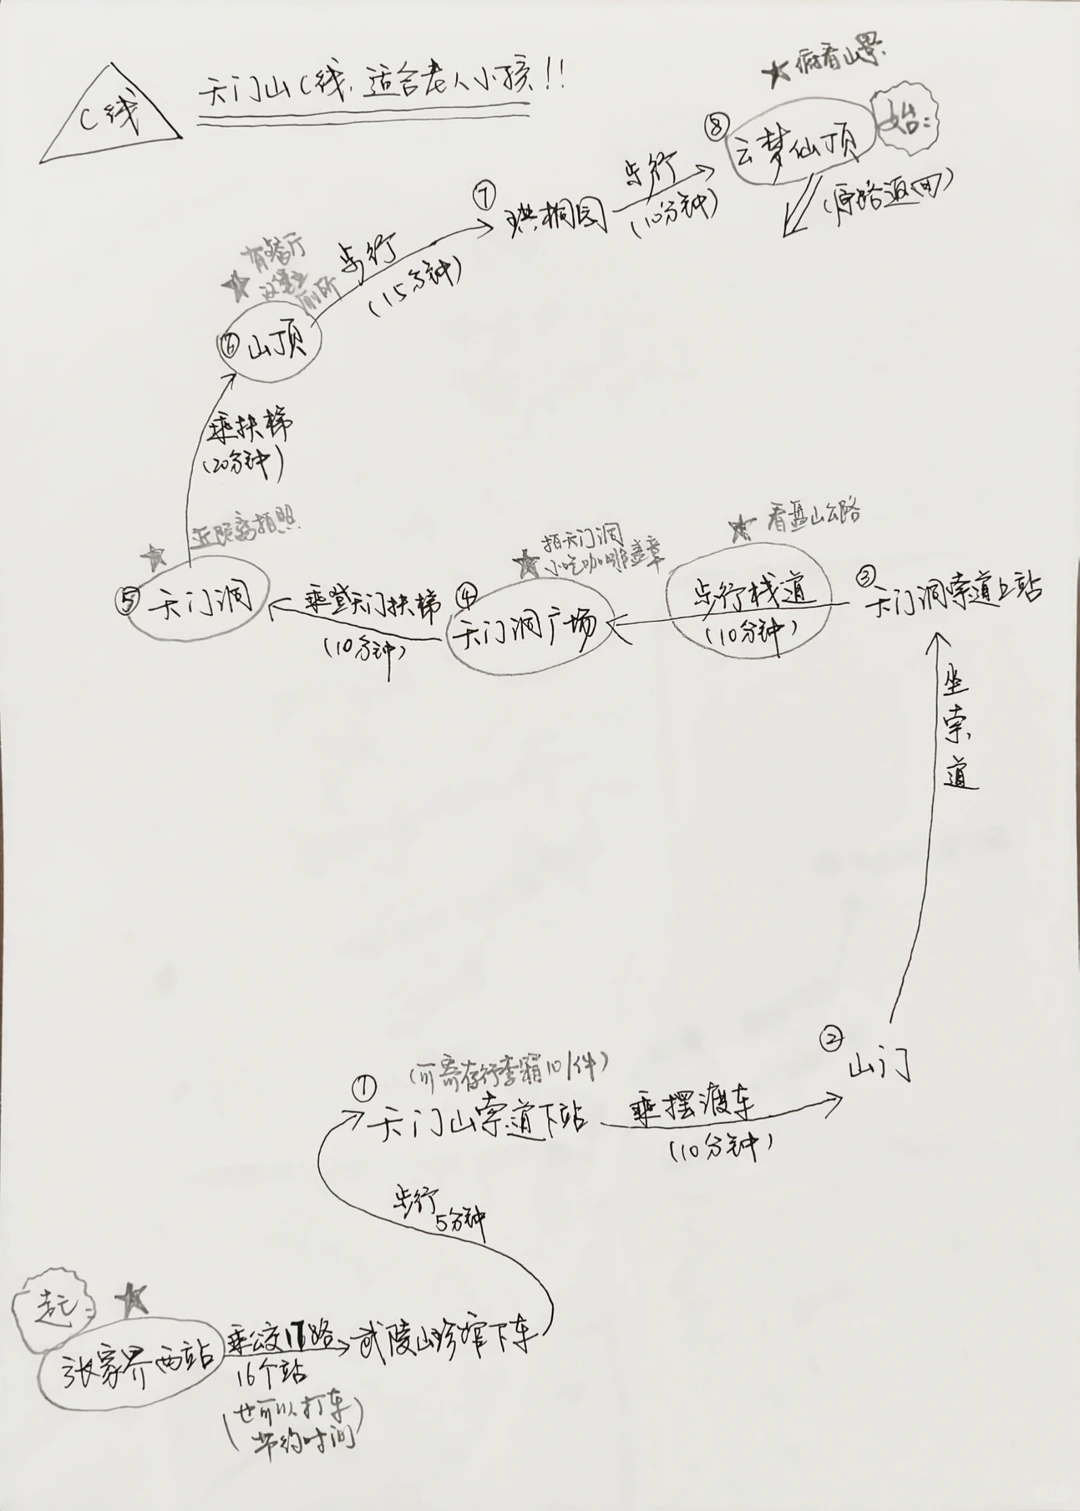 C线
天门山C线,适合老人小孩!!
★俯看山景
⑧
云梦仙顶
始:
(原路返回)
步行
(10分钟)
⑦
珙桐园
步行
(15分钟)
★有餐厅
厕所
⑥山顶
乘扶梯
(20分钟)
★近距离拍照
⑤天门洞
乘登天门扶梯
(10分钟)
★拍天门洞
小吃咖啡盖章
④
天门洞广场
★看盘山公路
步行栈道
(10分钟)
③
天门洞索道上站
坐索道
②
山门
(可寄存行李箱10/件)
①
天门山索道下站
乘摆渡车
(10分钟)
步行
5分钟
起:
★
张家界西站
乘公交17路
16个站
(也可以打车
节约时间)
武陵山珍馆下车